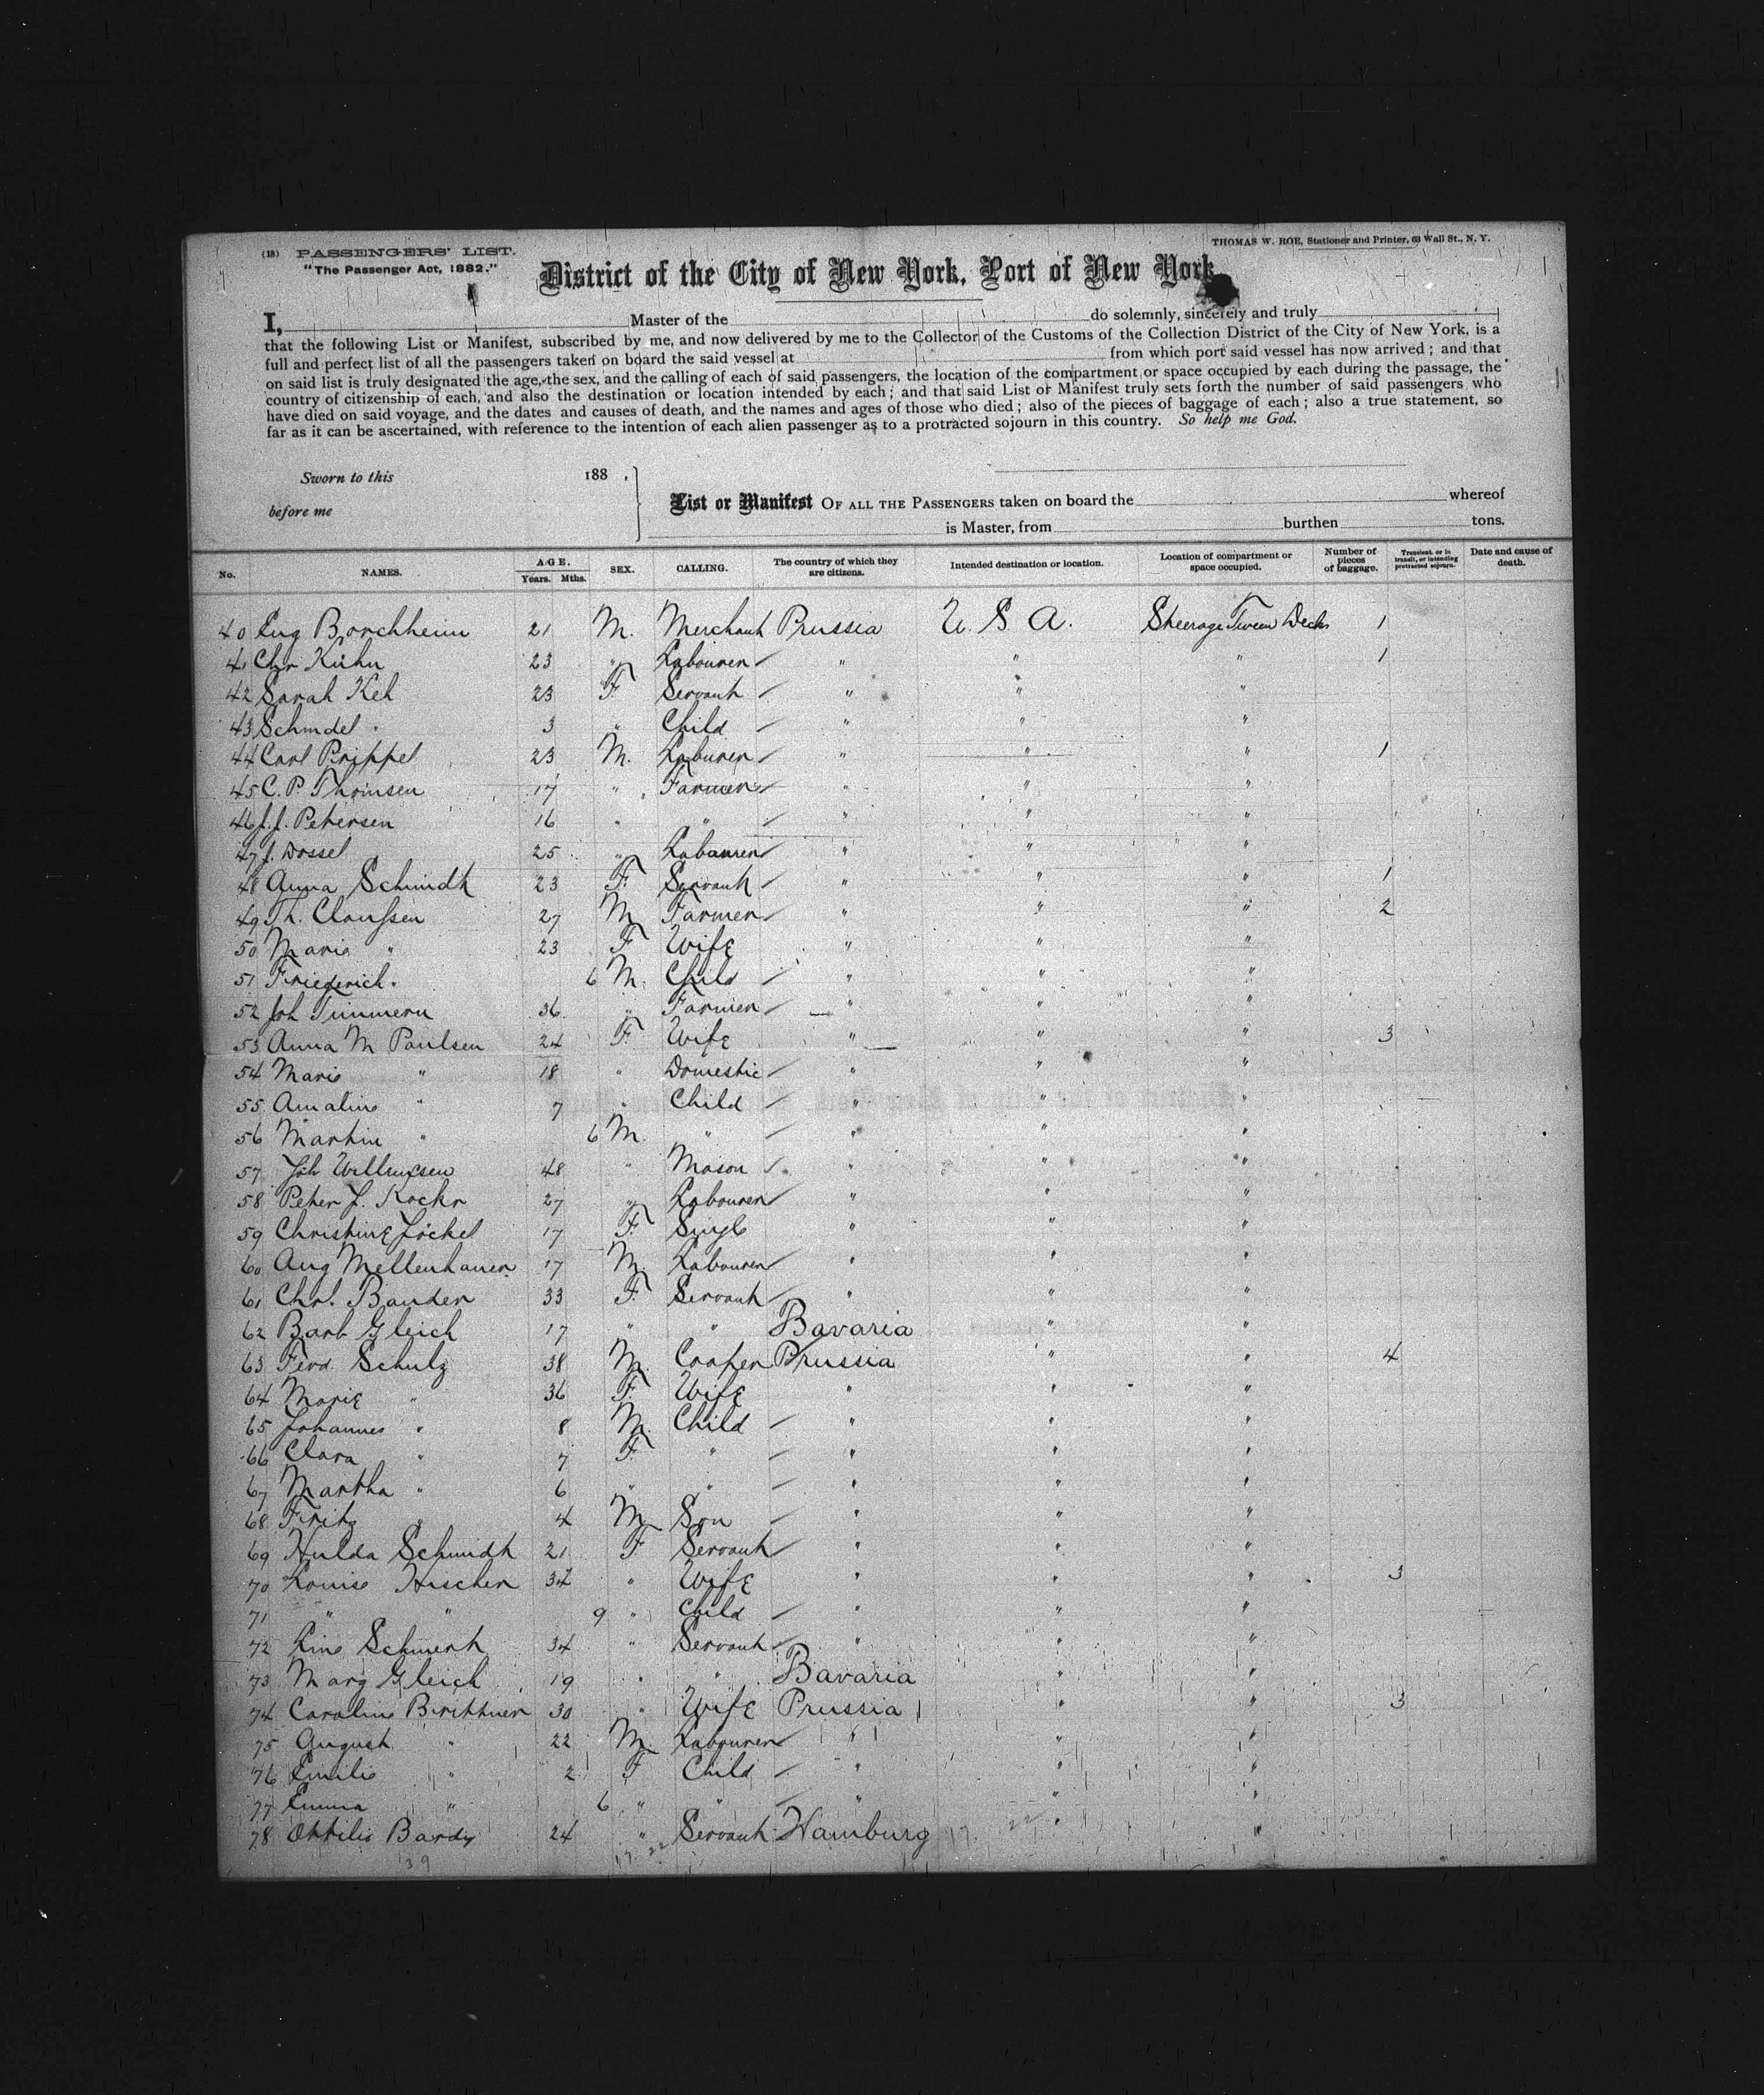 (18) PASSENGERS' LIST.
THOMAS W. ROE, Stationer and Printer, 63 Wall St., N. Y.
"The Passenger Act, 1882."
District of the City of New York, Port of New York
I, Master of the do solemnly, sincerely and truly
that the following List or Manifest, subscribed by me, and now delivered by me to the Collector of the Customs of the Collection District of the City of New York, is a
full and perfect list of all the passengers taken on board the said vessel at from which port said vessel has now arrived; and that
on said list is truly designated the age, the sex, and the calling of each of said passengers, the location of the compartment or space occupied by each during the passage, the
country of citizenship of each, and also the destination or location intended by each; and that said List or Manifest truly sets forth the number of said passengers who
have died on said voyage, and the dates and causes of death, and the names and ages of those who died; also of the pieces of baggage of each; also a true statement, so
far as it can be ascertained, with reference to the intention of each alien passenger as to a protracted sojourn in this country. So help me God.
Sworn to this 188 ,
before me
List or Manifest OF ALL THE PASSENGERS taken on board the whereof
is Master, from burthen tons.
No. NAMES. AGE. Years. Mths. SEX. CALLING. The country of which they are citizens. Intended destination or location. Location of compartment or space occupied. Number of pieces of baggage. Transient, or in transit, or intending protracted sojourn. Date and cause of death.
40 Eug Borchheim 21 M. Merchant Prussia U. S A. Steerage Tween Deck 1
41 Chr Kühn 23 " Labourer " " " 1
42 Sarah Keh 23 F. Servant " " "
43 Schindel " 3 " Child " " "
44 Carl Prippel 23 M. Labourer " " " 1
45 C. P. Thomsen 17 " Farmer " " "
46 J. J. Petersen 16 " " " " "
47 J. Dossel 25 " Labourer " " "
48 Anna Schmidt 23 F. Servant " " " 1
49 Th. Claussen 27 M Farmer " " " 2
50 Marie " 23 F Wife " " "
51 Friederich " 6 M. Child " " "
52 Joh Timmern 36 " Farmer " " "
53 Anna M Paulsen 24 F. Wife " " " 3
54 Marie " 18 " Domestic " " "
55 Amaline " 7 " Child " " "
56 Martin " 6 M. " " " "
57 Joh Willumsen 48 " Mason " " "
58 Peter J. Kockr 27 " Labourer " " "
59 Christine Jöckel 17 F. Single " " "
60 Aug Mellenhauer 17 M. Labourer " " "
61 Chr. Bauder 33 F. Servant " " "
62 Barb Gleich 17 " " Bavaria " "
63 Ferd. Schulz 38 M. Cooper Prussia " " 4
64 Marie " 36 F. Wife " " "
65 Johannes " 8 M. Child " " "
66 Clara " 7 F. " " " "
67 Martha " 6 " " " " "
68 Fritz " 4 M Son " " "
69 Hulda Schmidt 21 F Servant " " "
70 Louise Huscher 34 " Wife " " " 3
71 " " 9 " Child " " "
72 Line Schmerk 34 " Servant " " "
73 Marg Gleich 19 " " Bavaria " "
74 Caroline Brittner 30 " Wife Prussia " " 3
75 August " 22 M. Labourer " " "
76 Emilie " 2 F Child " " "
77 Emma " 6 " " " " "
78 Ottilie Bardy 24 " Servant Hamburg " "
39 17. 22 17. 22